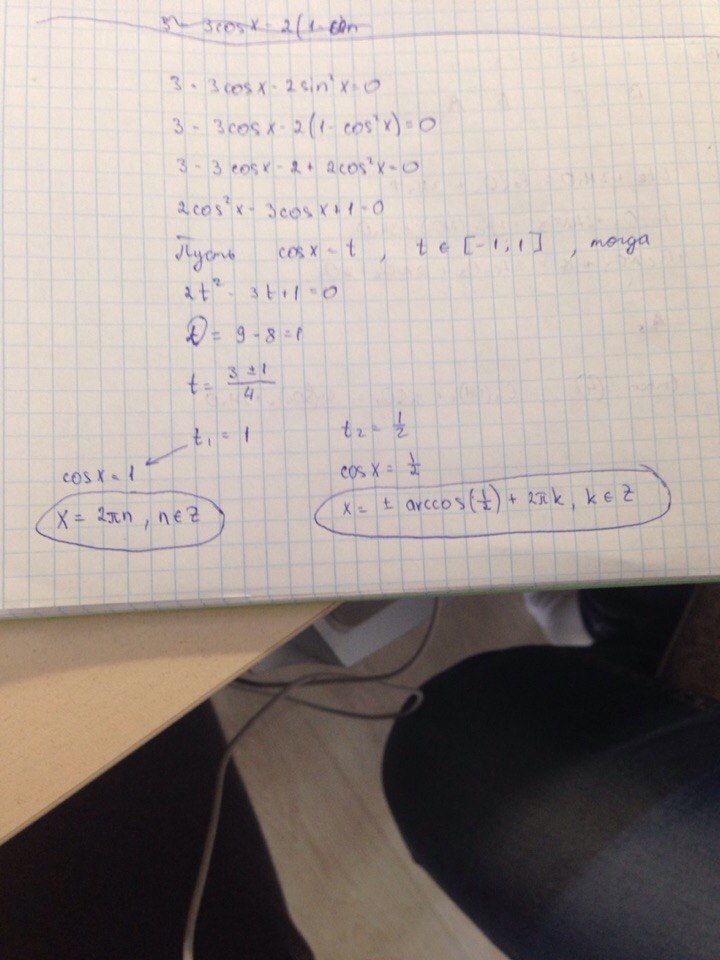 3 - 3cosx - 2(1 -
3 - 3cosx - 2sin²x = 0
3 - 3cosx - 2(1 - cos²x) = 0
3 - 3cosx - 2 + 2cos²x = 0
2cos²x - 3cosx + 1 = 0
Пусть cosx = t, t ∈ [-1, 1], тогда
2t² - 3t + 1 = 0
D = 9 - 8 = 1
t = (3 ± 1)/4
t₁ = 1
t₂ = 1/2
cosx = 1
cosx = 1/2
x = 2πn, n ∈ Z
x = ± arccos(1/2) + 2πk, k ∈ Z